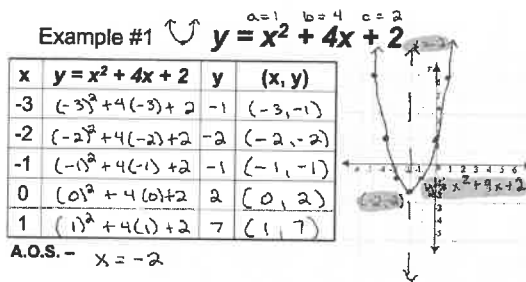 a=1 b=4 c=2
Example #1 y = x² + 4x + 2
x y = x² + 4x + 2 y (x, y)
-3 (-3)² + 4(-3) + 2 -1 (-3, -1)
-2 (-2)² + 4(-2) + 2 -2 (-2, -2)
-1 (-1)² + 4(-1) + 2 -1 (-1, -1)
0 (0)² + 4(0) + 2 2 (0, 2)
1 (1)² + 4(1) + 2 7 (1, 7)
A.O.S. – x = -2
(-2,-2)